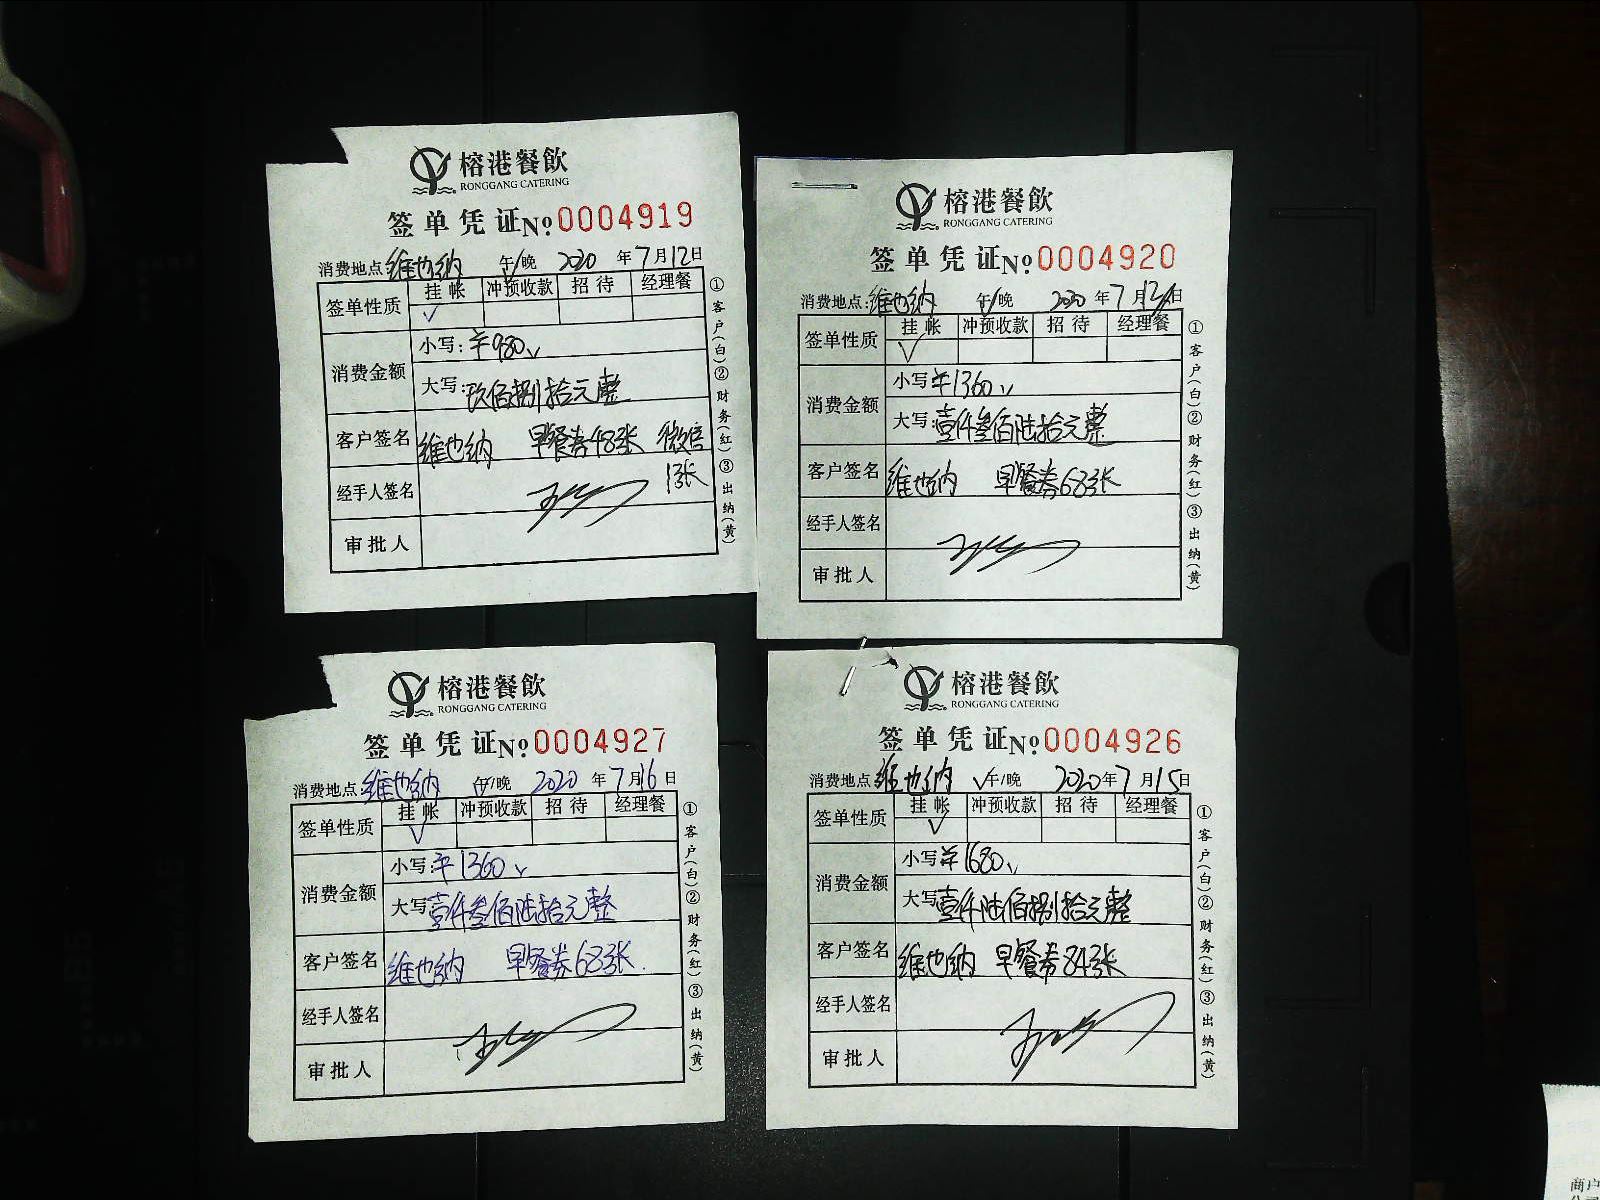 榕港餐飲
RONGGANG CATERING
签单凭证№0004919
消费地点:维也纳 午/晚 2020年7月12日
签单性质 挂帐 冲预收款 招待 经理餐
√
消费金额 小写:¥980
大写:玖佰捌拾元整
客户签名 维也纳 早餐券48张 微信
1张
经手人签名
审批人
①客户(白)②财务(红)③出纳(黄)
榕港餐飲
RONGGANG CATERING
签单凭证№0004920
消费地点:维也纳 午/晚 2020年7月日
签单性质 挂帐 冲预收款 招待 经理餐
√
消费金额 小写 ¥1360
大写:壹仟叁佰陆拾元整
客户签名 维也纳 早餐券68张
经手人签名
审批人
①客户(白)②财务(红)③出纳(黄)
榕港餐飲
RONGGANG CATERING
签单凭证№0004927
消费地点:维也纳 午/晚 2020年7月16日
签单性质 挂帐 冲预收款 招待 经理餐
√
消费金额 小写:¥1360
大写 壹仟叁佰陆拾元整
客户签名 维也纳 早餐券68张.
经手人签名
审批人
①客户(白)②财务(红)③出纳(黄)
榕港餐飲
RONGGANG CATERING
签单凭证№0004926
消费地点:维也纳 √午/晚 2020年7月15日
签单性质 挂帐 冲预收款 招待 经理餐
√
消费金额 小写 ¥1680
大写 壹仟陆佰捌拾元整
客户签名 维也纳 早餐券84张
经手人签名
审批人
①客户(白)②财务(红)③出纳(黄)
商户